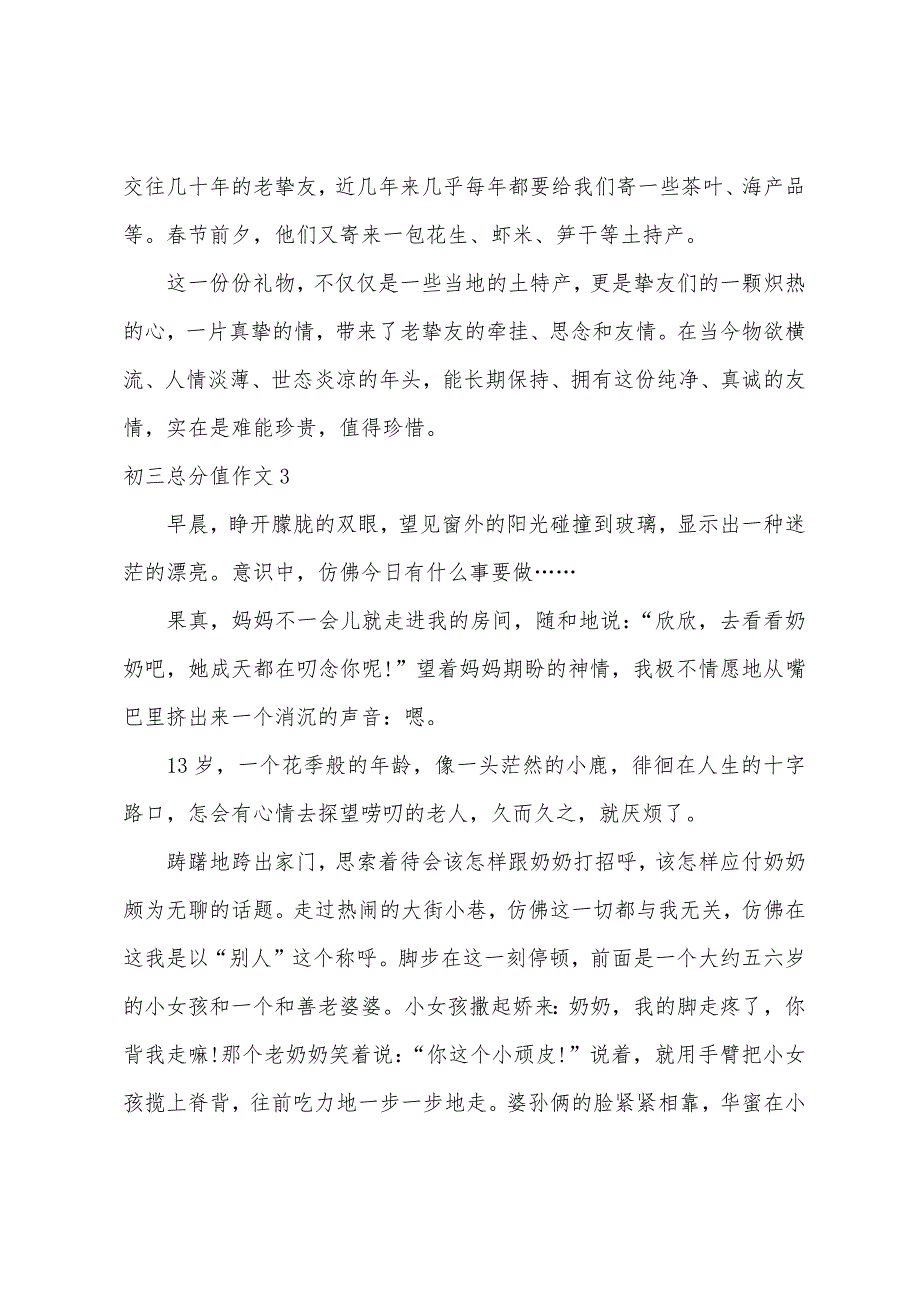 交往几十年的老挚友，近几年来几乎每年都要给我们寄一些茶叶、海产品
等。春节前夕，他们又寄来一包花生、虾米、笋干等土持产。
这一份份礼物，不仅仅是一些当地的土特产，更是挚友们的一颗炽热
的心，一片真挚的情，带来了老挚友的牵挂、思念和友情。在当今物欲横
流、人情淡薄、世态炎凉的年头，能长期保持、拥有这份纯净、真诚的友
情，实在是难能珍贵，值得珍惜。
初三总分值作文 3
早晨，睁开朦胧的双眼，望见窗外的阳光碰撞到玻璃，显示出一种迷
茫的漂亮。意识中，仿佛今日有什么事要做……
果真，妈妈不一会儿就走进我的房间，随和地说：“欣欣，去看看奶
奶吧，她成天都在叨念你呢!”望着妈妈期盼的神情，我极不情愿地从嘴
巴里挤出来一个消沉的声音：嗯。
13 岁，一个花季般的年龄，像一头茫然的小鹿，徘徊在人生的十字
路口，怎会有心情去探望唠叨的老人，久而久之，就厌烦了。
踌躇地跨出家门，思索着待会该怎样跟奶奶打招呼，该怎样应付奶奶
颇为无聊的话题。走过热闹的大街小巷，仿佛这一切都与我无关，仿佛在
这我是以“别人”这个称呼。脚步在这一刻停顿，前面是一个大约五六岁
的小女孩和一个和善老婆婆。小女孩撒起娇来：奶奶，我的脚走疼了，你
背我走嘛!那个老奶奶笑着说：“你这个小顽皮!”说着，就用手臂把小女
孩揽上脊背，往前吃力地一步一步地走。婆孙俩的脸紧紧相靠，华蜜在小